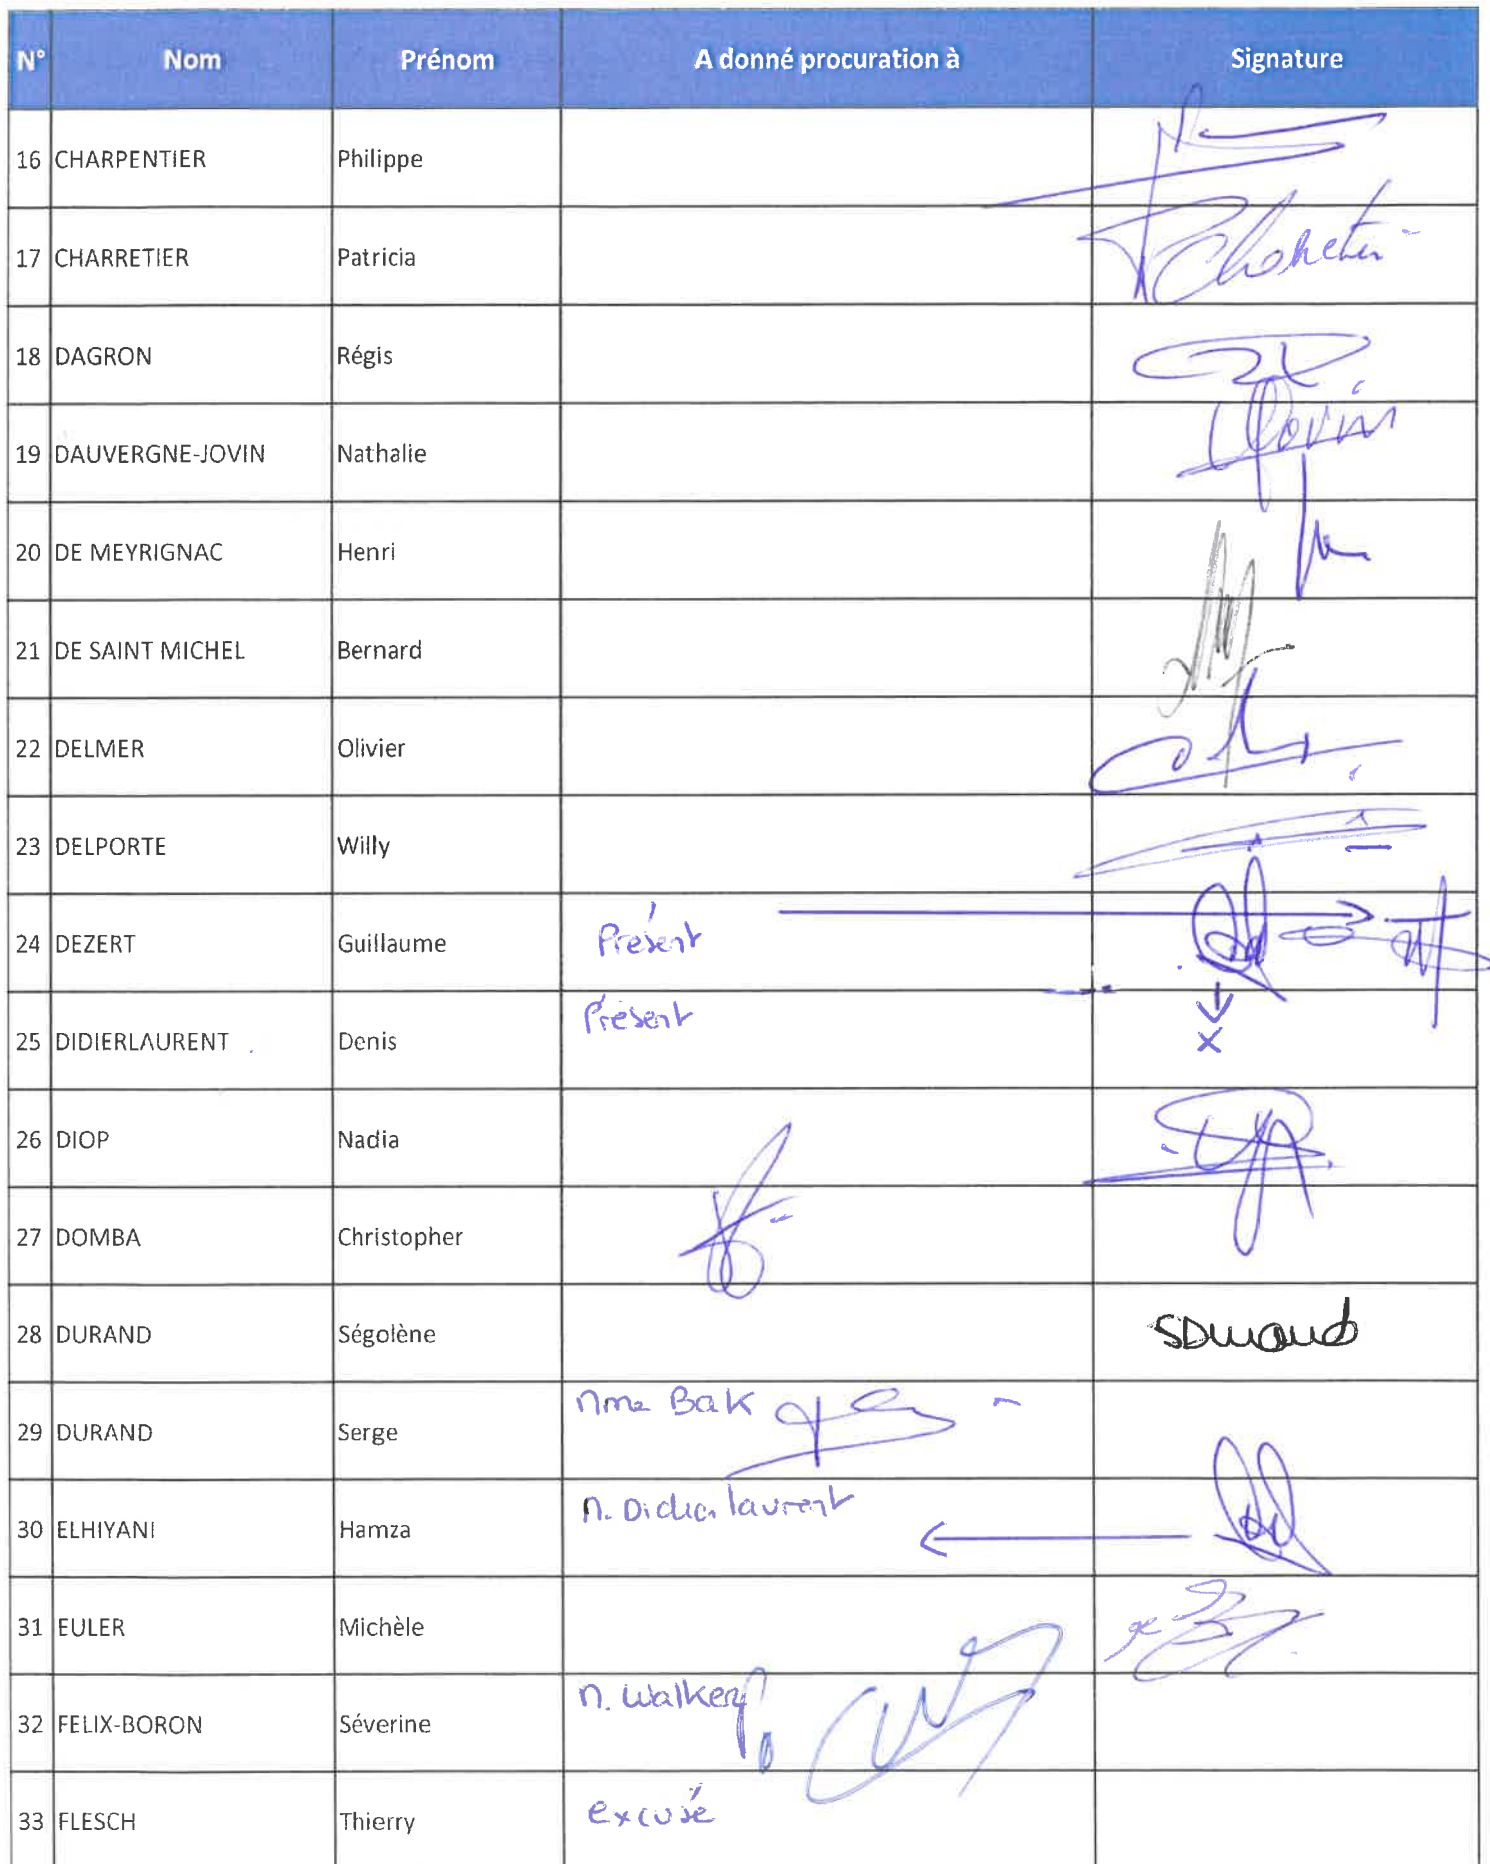 N° Nom Prénom A donné procuration à Signature
16 CHARPENTIER Philippe
17 CHARRETIER Patricia
18 DAGRON Régis
19 DAUVERGNE-JOVIN Nathalie Jovin
20 DE MEYRIGNAC Henri
21 DE SAINT MICHEL Bernard
22 DELMER Olivier
23 DELPORTE Willy
24 DEZERT Guillaume Présent
25 DIDIERLAURENT Denis Présent x
26 DIOP Nadia
27 DOMBA Christopher
28 DURAND Ségolène SDurand
29 DURAND Serge Mme Bak
30 ELHIYANI Hamza M. Didier laurent
31 EULER Michèle
32 FELIX-BORON Séverine M. Walker
33 FLESCH Thierry excusé